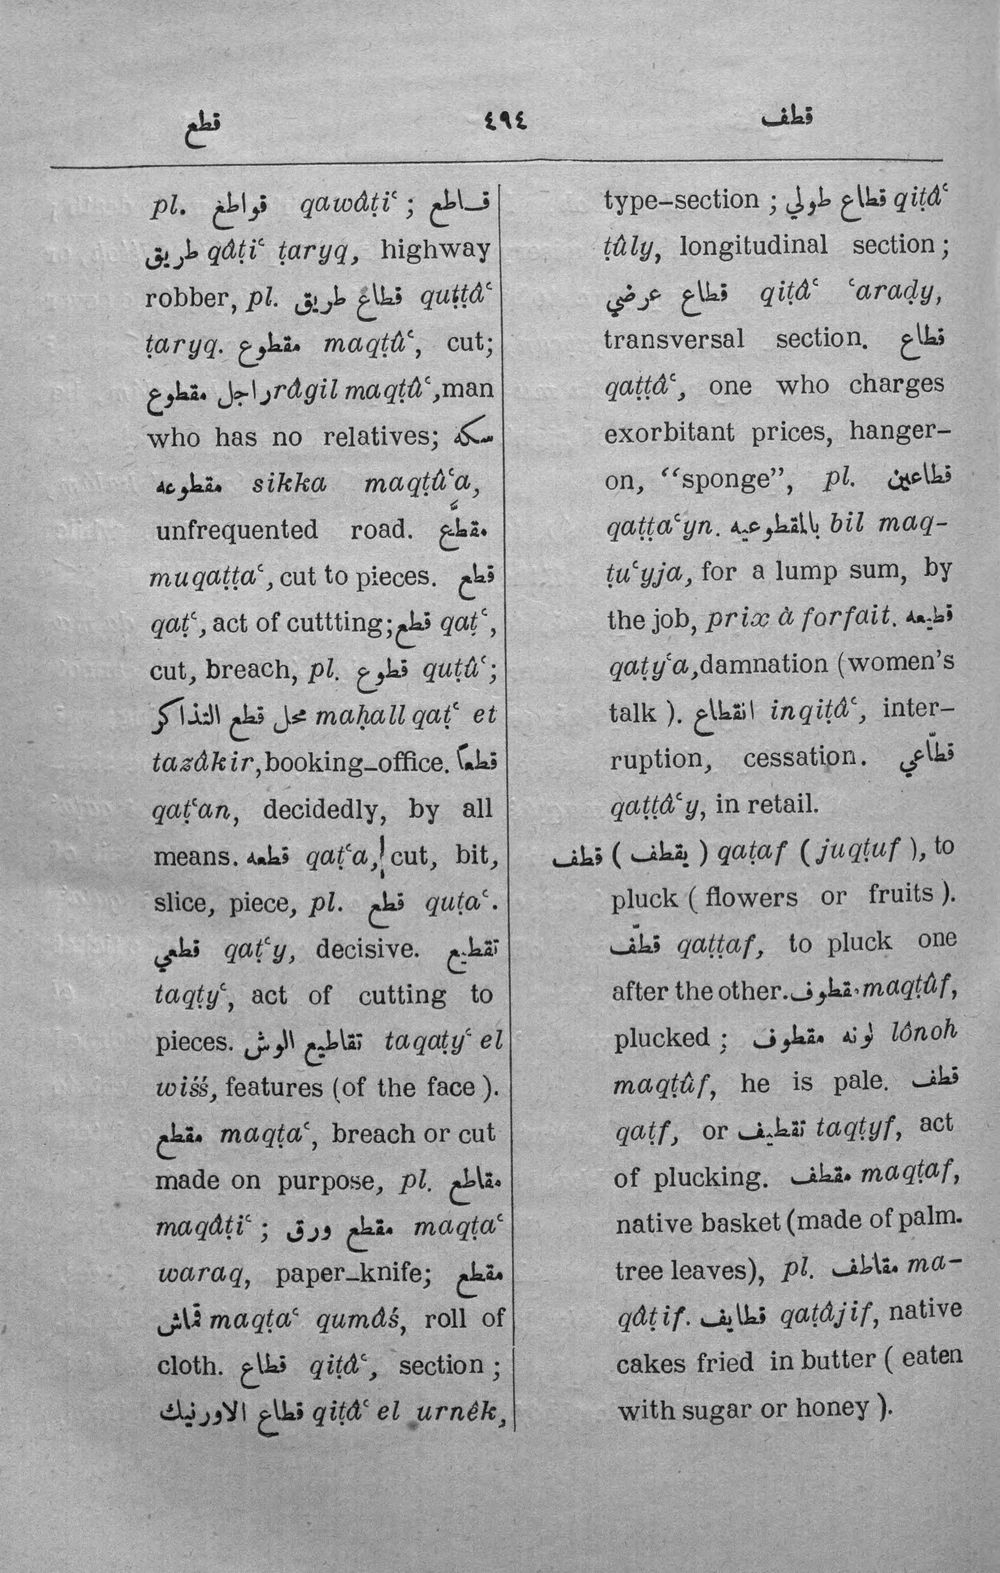 قطع ٤٩٤ قطف
pl. قواطع qawâṭiʿ ; قاطع
طريق qâṭiʿ ṭaryq, highway
robber, pl. قطاع طريق quṭṭâʿ
ṭaryq. مقطوع maqṭûʿ, cut;
راجل مقطوع râgil maqṭûʿ, man
who has no relatives; سكه
مقطوعه sikka maqṭûʿa,
unfrequented road. مقطَّع
muqaṭṭaʿ, cut to pieces. قطع
qaṭʿ, act of cuttting; قطع qaṭʿ,
cut, breach, pl. قطوع quṭûʿ;
محل قطع التذاكر maḥall qaṭʿ et
tazâkir, booking-office. قطعاً
qaṭʿan, decidedly, by all
means. قطعه qaṭʿa, cut, bit,
slice, piece, pl. قطع quṭaʿ.
قطعي qaṭʿy, decisive. تقطيع
taqṭyʿ, act of cutting to
pieces. تقاطيع الوش taqaṭyʿ el
wiśś, features (of the face ).
مقطع maqṭaʿ, breach or cut
made on purpose, pl. مقاطع
maqâṭiʿ ; مقطع ورق maqṭaʿ
waraq, paper-knife; مقطع
قماش maqṭaʿ qumâś, roll of
cloth. قطاع qiṭâʿ, section ;
قطاع الاورنيك qiṭâʿ el urnêk,
type-section ; قطاع طولي qiṭâʿ
ṭûly, longitudinal section ;
قطاع عرضي qiṭâʿ ʿaraḍy,
transversal section. قطاع
qaṭṭâʿ, one who charges
exorbitant prices, hanger-
on, “sponge”, pl. قطاعين
qaṭṭaʿyn. بالمقطوعيه bil maq-
ṭuʿyja, for a lump sum, by
the job, prix à forfait. قطيعه
qaṭyʿa, damnation (women’s
talk ). انقطاع inqiṭâʿ, inter-
ruption, cessation. قطّاعي
qaṭṭâʿy, in retail.
قطف ( يقطف ) qaṭaf ( juqṭuf ), to
pluck ( flowers or fruits ).
قطّف qaṭṭaf, to pluck one
after the other. مقطوف maqṭûf,
plucked ; لونه مقطوف lônoh
maqṭûf, he is pale. قطف
qaṭf, or تقطيف taqṭyf, act
of plucking. مقطف maqṭaf,
native basket (made of palm.
tree leaves), pl. مقاطف ma-
qâṭif. قطايف qaṭâjif, native
cakes fried in butter ( eaten
with sugar or honey ).